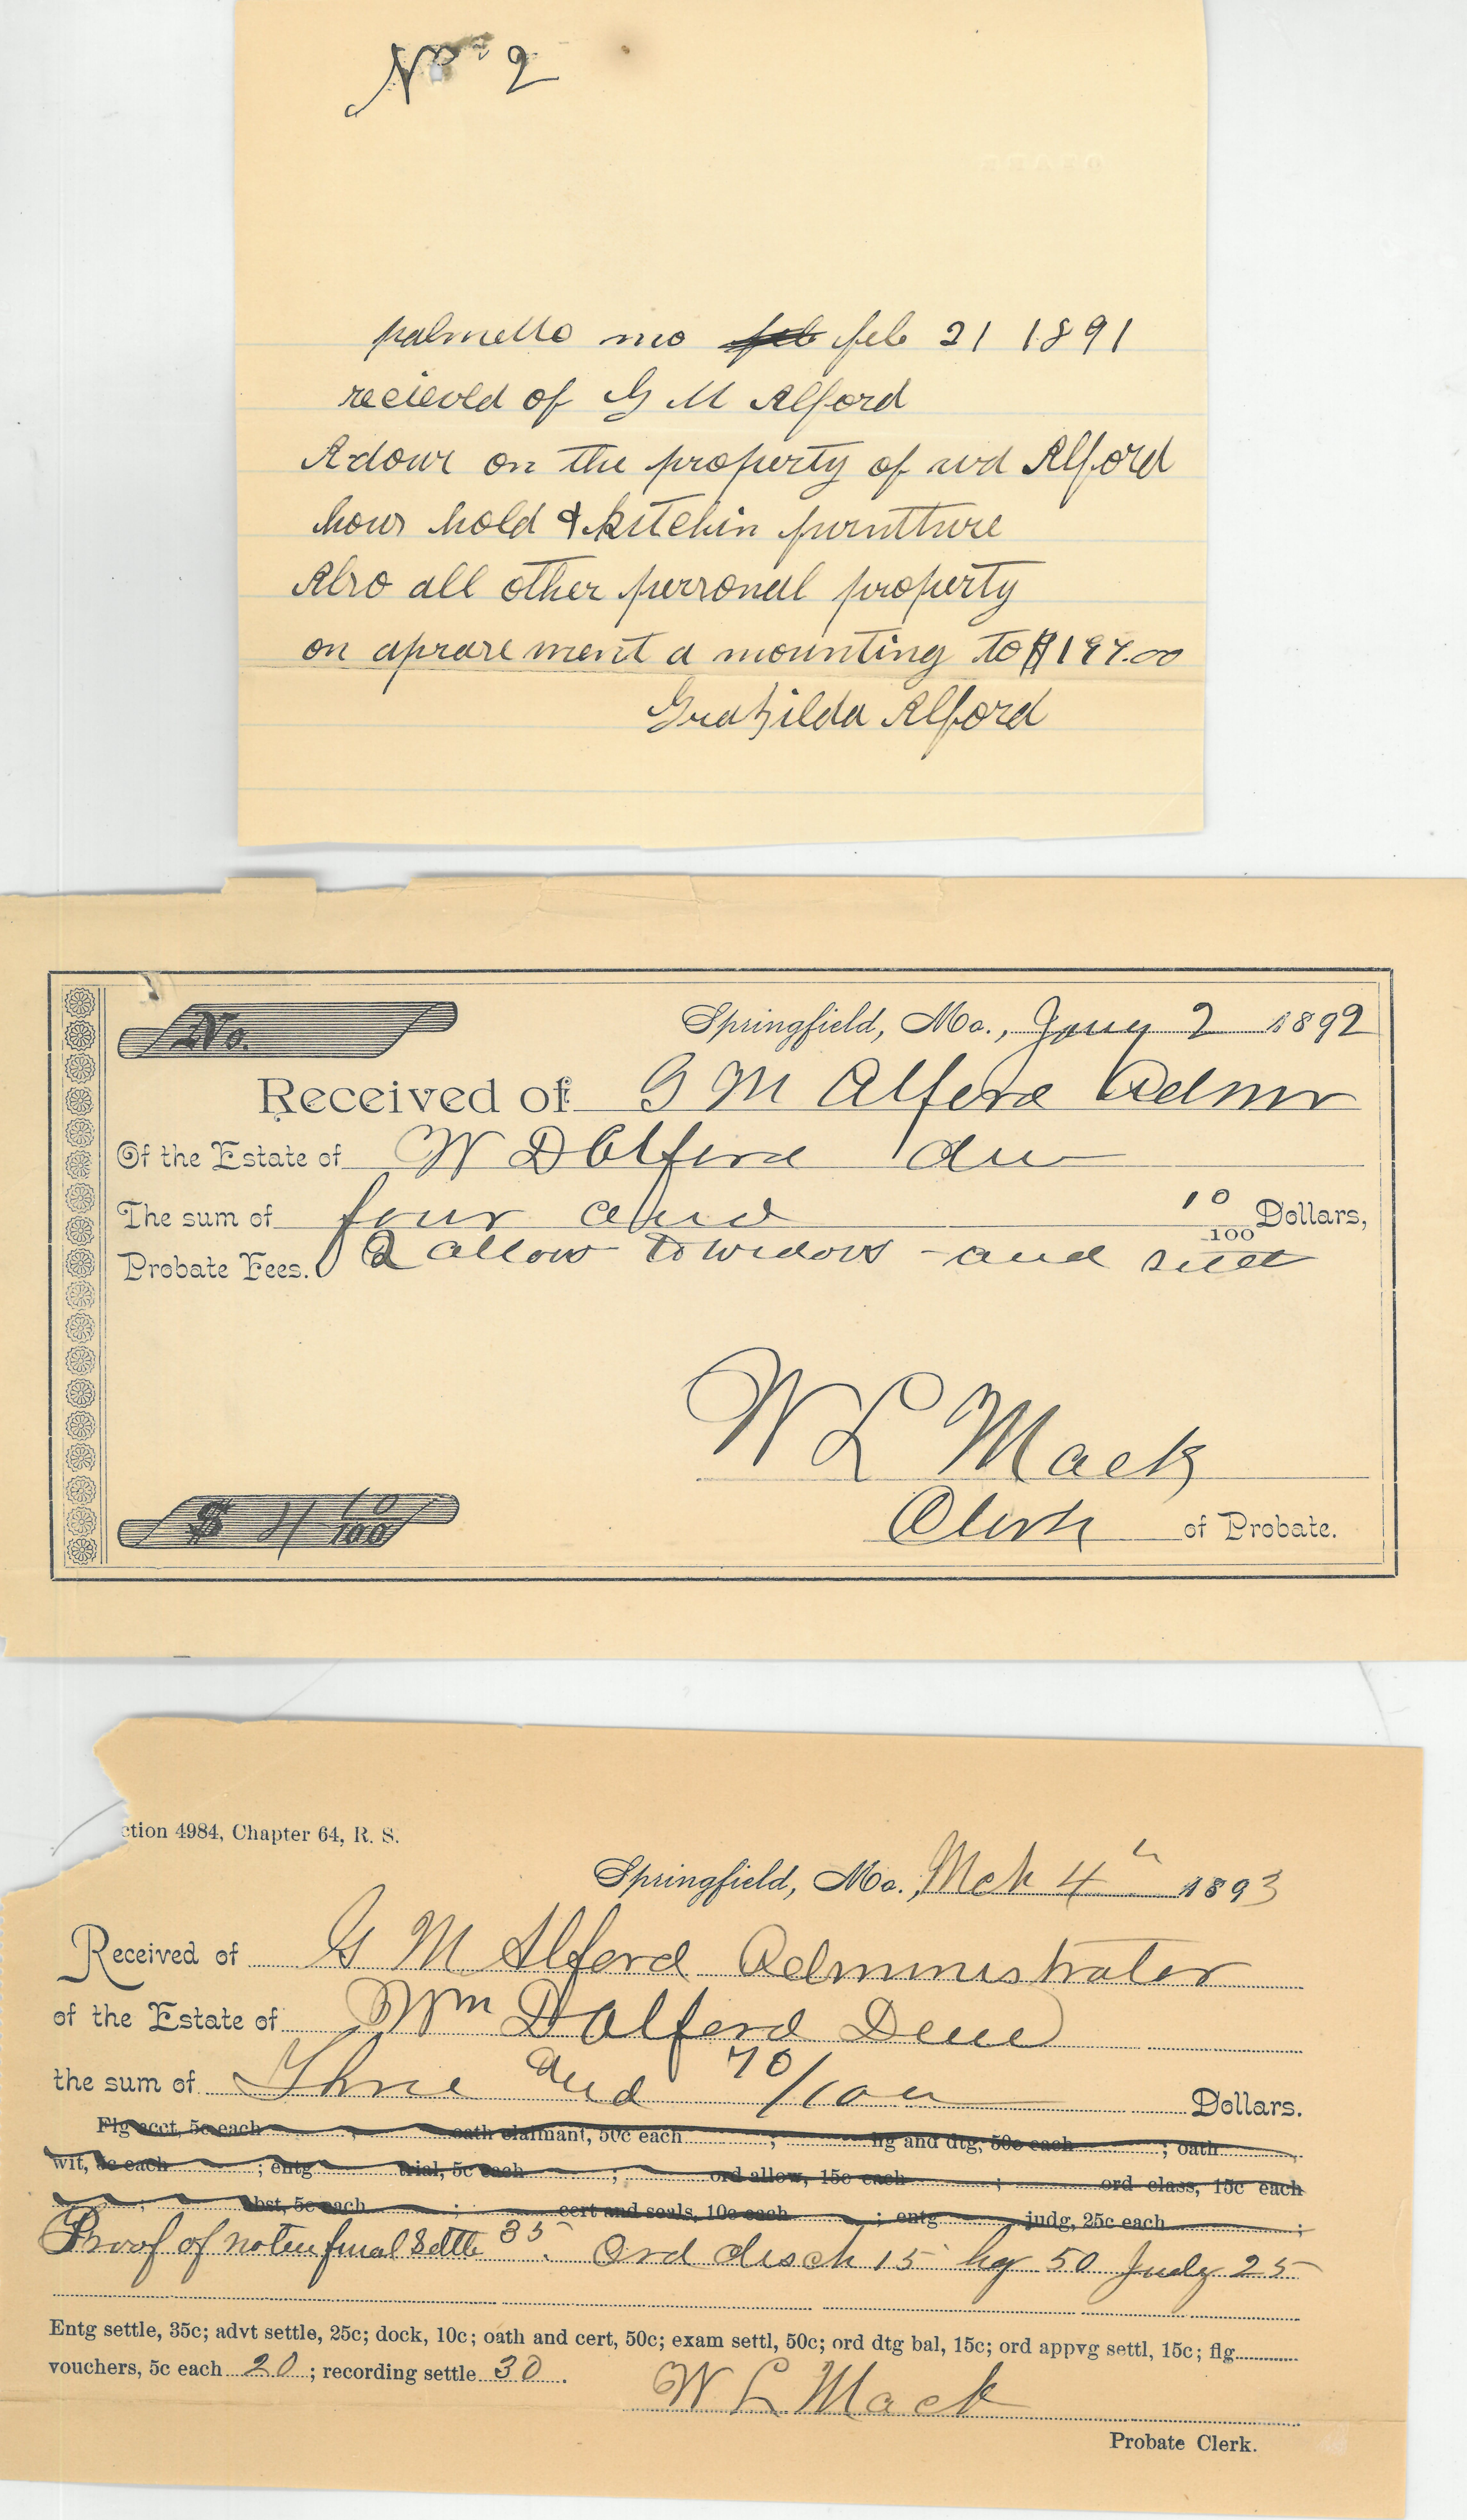 No 2
palmetto mo feb feb 21 1891
recieved of G M Alford
A dowr on the property of wd Alford
hous hold & kitchin purntture
Also all other personal property
on aprasement a mounting to $197.00
Alford
No.
Springfield, Mo., Jany 2 1892
Received of G M Alford Admr
Of the Estate of W D Alford dec
The sum of four and 10/100 Dollars,
Probate Fees. 2 allow to widow and sett
W L Mack
Clerk of Probate.
$ 4 10/100
ction 4984, Chapter 64, R. S.
Springfield, Mo., Mch 4th 1893
Received of G M Alford Administrator
of the Estate of Wm D Alford Decd
the sum of Three and 70/100 Dollars.
Flg acct, 5c each ; oath claimant, 50c each ; hg and dtg, 50c each ; oath
wit, 5c each ; entg trial, 5c each ; ord allow, 15c each ; ord class, 15c each
; abst, 5c each ; cert and seals, 10c each ; entg judg, 25c each ;
Proof of notice final Settle 35. Ord disch 15 hg 50 Judg 25
Entg settle, 35c; advt settle, 25c; dock, 10c; oath and cert, 50c; exam settl, 50c; ord dtg bal, 15c; ord appvg settl, 15c; flg
vouchers, 5c each 20 ; recording settle 30 .
W L Mack
Probate Clerk.